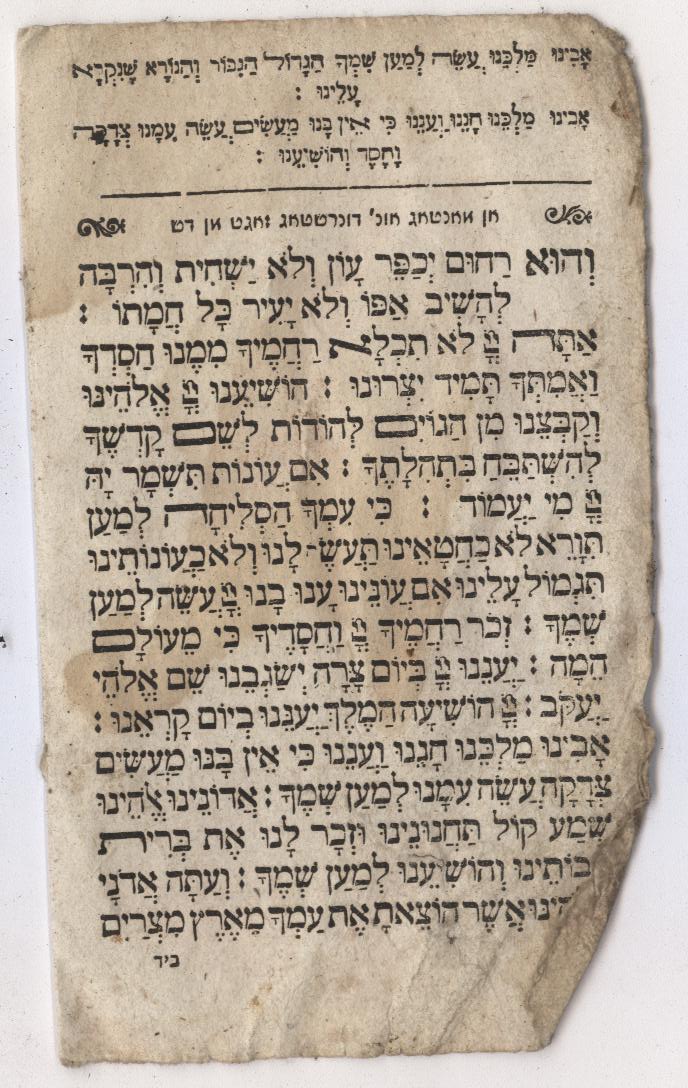 אָבִינוּ מַלְכֵּנוּ עֲשֵׂה לְמַעַן שִׁמְךָ הַגָּדוֹל הַגִּבּוֹר וְהַנּוֹרָא שֶׁנִּקְרָא
עָלֵינוּ :
אָבִינוּ מַלְכֵּנוּ חָנֵּנוּ וַעֲנֵנוּ כִּי אֵין בָּנוּ מַעֲשִׂים עֲשֵׂה עִמָּנוּ צְדָקָה
וָחֶסֶד וְהוֹשִׁיעֵנוּ :
אן מאנטאג אונ' דונרשטאג זאגט מן דש
וְהוּא רַחוּם יְכַפֵּר עָוֹן וְלֹא יַשְׁחִית וְהִרְבָּה
לְהָשִׁיב אַפּוֹ וְלֹא יָעִיר כָּל חֲמָתוֹ :
אַתָּה יְיָ לֹא תִכְלָא רַחֲמֶיךָ מִמֶּנּוּ חַסְדְּךָ
וַאֲמִתְּךָ תָּמִיד יִצְּרוּנוּ : הוֹשִׁיעֵנוּ יְיָ אֱלֹהֵינוּ
וְקַבְּצֵנוּ מִן הַגּוֹיִם לְהוֹדוֹת לְשֵׁם קָדְשֶׁךָ
לְהִשְׁתַּבֵּחַ בִּתְהִלָּתֶךָ : אִם עֲוֹנוֹת תִּשְׁמָר יָהּ
יְיָ מִי יַעֲמוֹד : כִּי עִמְּךָ הַסְּלִיחָה לְמַעַן
תִּוָּרֵא לֹא כַחֲטָאֵינוּ תַּעֲשֶׂ־ לָנוּ וְלֹא כַעֲוֹנוֹתֵינוּ
תִּגְמוֹל עָלֵינוּ אִם עֲוֹנֵינוּ עָנוּ בָנוּ יְיָ עֲשֵׂה לְמַעַן
שְׁמֶךָ : זְכֹר רַחֲמֶיךָ יְיָ וַחֲסָדֶיךָ כִּי מֵעוֹלָם
הֵמָּה : יַעֲנֵנוּ יְיָ בְּיוֹם צָרָה יְשַׂגְּבֵנוּ שֵׁם אֱלֹהֵי
יַעֲקֹב : יְיָ הוֹשִׁיעָה הַמֶּלֶךְ יַעֲנֵנוּ בְיוֹם קָרְאֵנוּ :
אָבִינוּ מַלְכֵּנוּ חָנֵּנוּ וַעֲנֵנוּ כִּי אֵין בָּנוּ מַעֲשִׂים
צְדָקָה עֲשֵׂה עִמָּנוּ לְמַעַן שְׁמֶךָ : אֲדוֹנֵינוּ אֱלֹהֵינוּ
שְׁמַע קוֹל תַּחֲנוּנֵינוּ וּזְכָר לָנוּ אֶת בְּרִית
בוֹתֵינוּ וְהוֹשִׁיעֵנוּ לְמַעַן שְׁמֶךָ : וְעַתָּה אֲדֹנָי
הֵינוּ אֲשֶׁר הוֹצֵאתָ אֶת עַמְּךָ מֵאֶרֶץ מִצְרַיִם
ביד